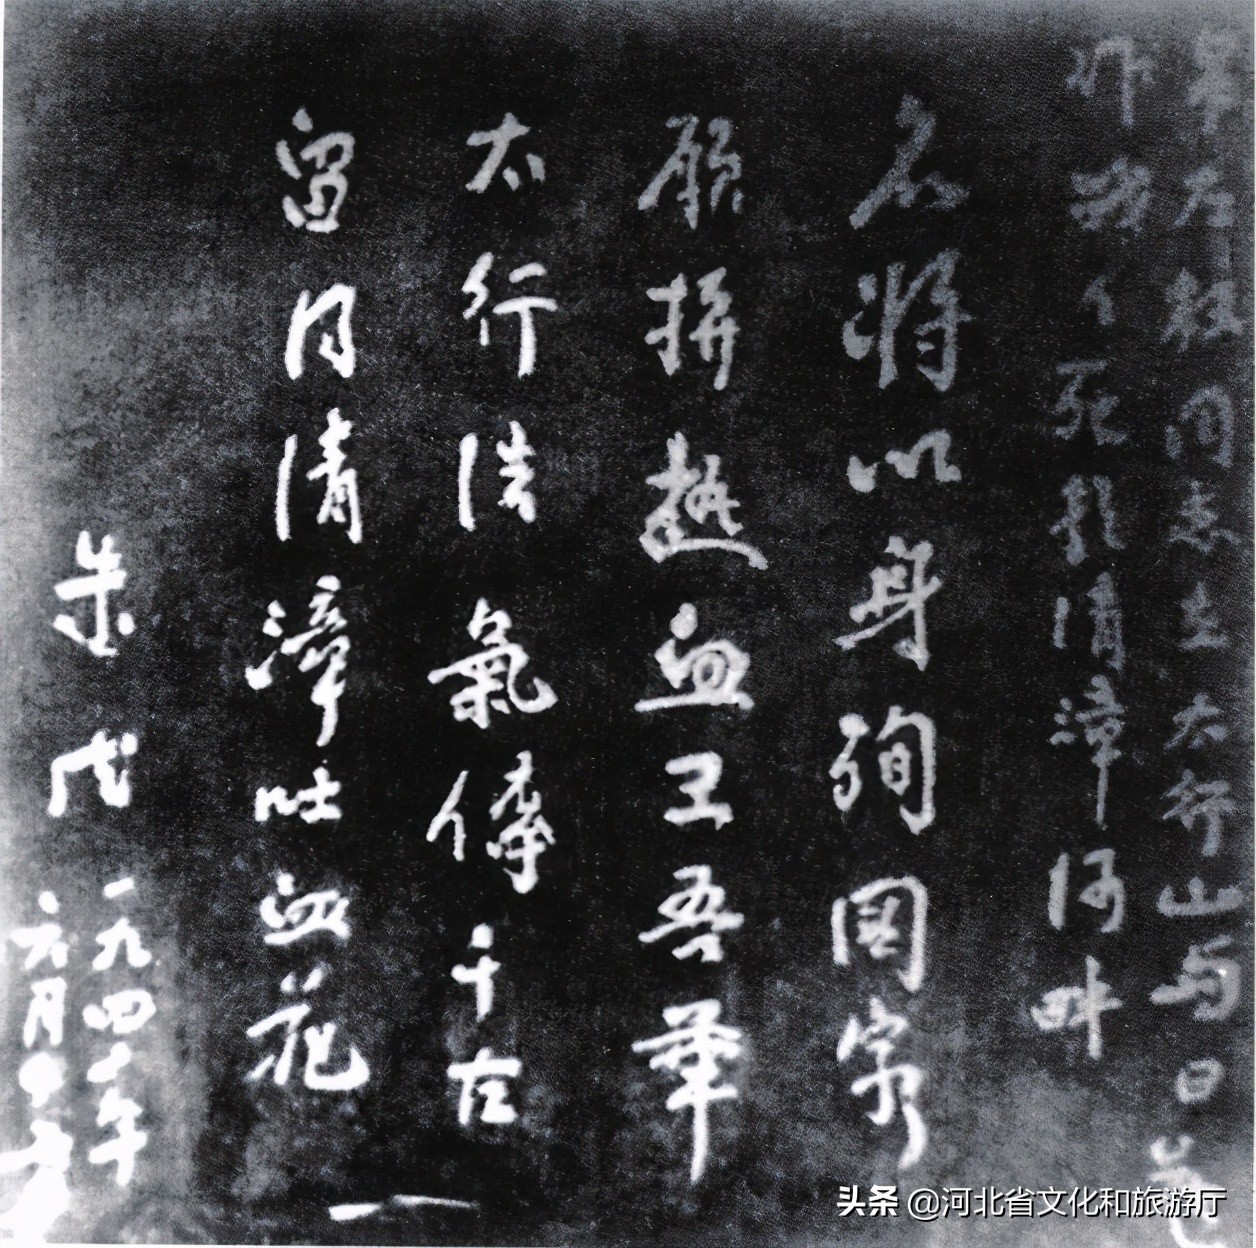 吊左权同志在太行山与日寇
作战〻死於清漳河畔
名将以身殉國家
願拼熱血卫吾華
太行浩氣傳千古
留得清漳吐血花
朱德
一九四二年
六月
头条 @河北省文化和旅游厅